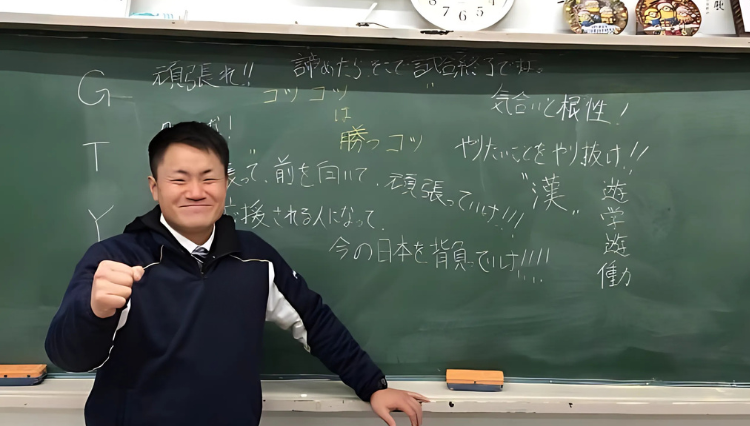 G
T
Y
頑張れ!!
諦めたらそこで試合終了ですよ。
コツコツ
は
勝つコツ
気合いと根性!
やりたいことをやり抜け!!
って、前を向いて、頑張っていけ!!!
援される人になって、
今の日本を背負っていけ!!!!
"漢"
遊学遊働